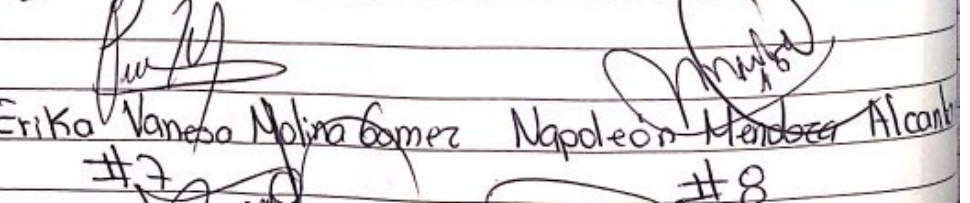 Erika Vanessa Molina Gomez Napoleón Mendoza
#7 #8